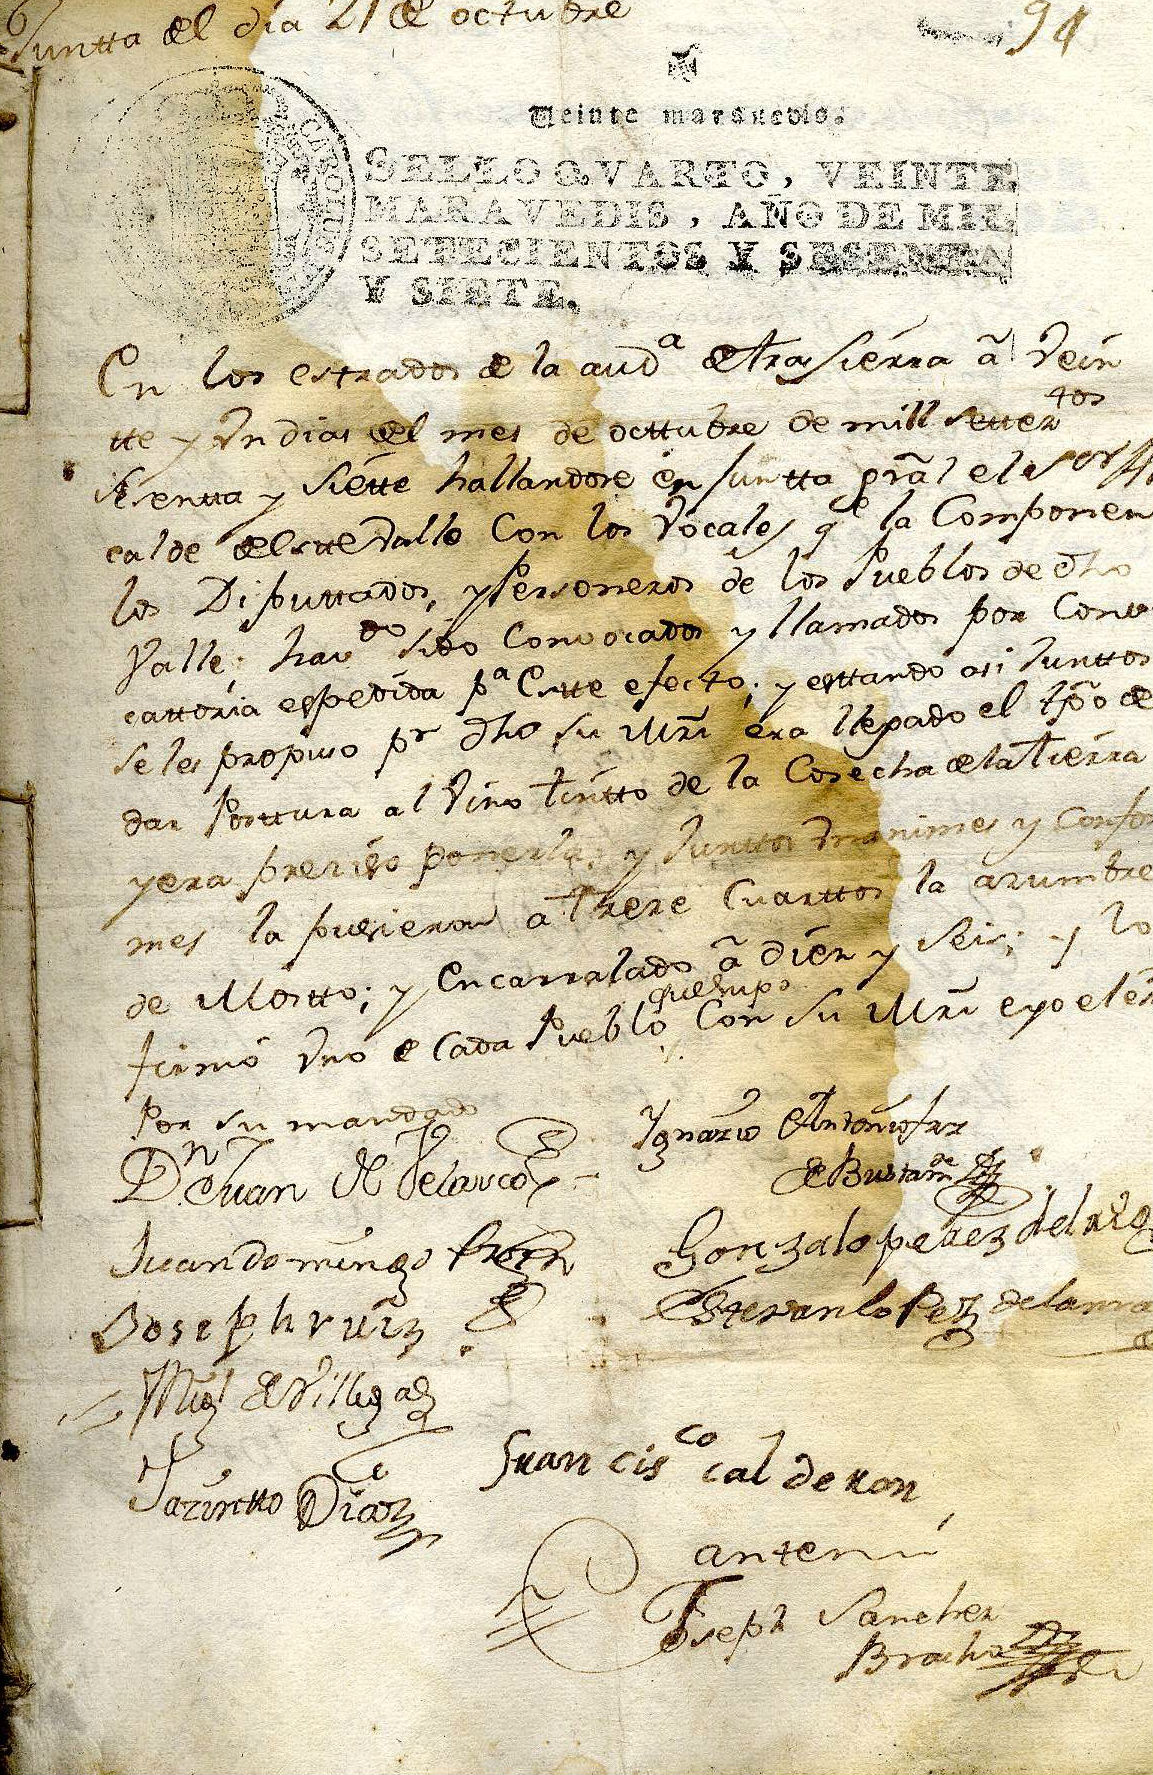 Juntta del dia 21 de octubre
94
Veinte maravedis.
SELLO QVARTO, VEINTE
MARAVEDIS, AÑO DE MIL
SETECIENTOS Y SESENTA
Y SIETE.
En los estrados de la audª de trasierra â Vein
tte y Un dias del mes de octtubre de mill settetos
sesentta y siette hallandose en Juntta grãl el sor Al
calde de estte Valle Con los Vocales qe la Componen
los Diputtados, y Personeros de los Pueblos de dho
Valle; havdo sido Convocados y llamados por Conbo
cattoria espedida pª Estte efecto; y esttando asi Junttos
se les propuso pr dho su Mrd era llegado el tpõ de
dar Posttura al Vino tintto de la Cosecha de la tierra
y era preciso ponerla; y Junttos Unanimes y Confor
mes la pusieron a treze Cuarttos la azumbre
de Mostto; y Encarralado â diez y seis; y lo
firmó Uno de Cada Pueblo que supo Con su Mrd e yo el es
Por su mandado
Dn Juan de Velarco
Ygnazio Antonio
de Bustamte
Juan domingo
Gonzalo perez del rio
Joseph ruiz
Estevan lopez de
Migl de Villegas
Jazintto Diaz
Francisco calderon
antemi
Joseph Sanchez
Bracho